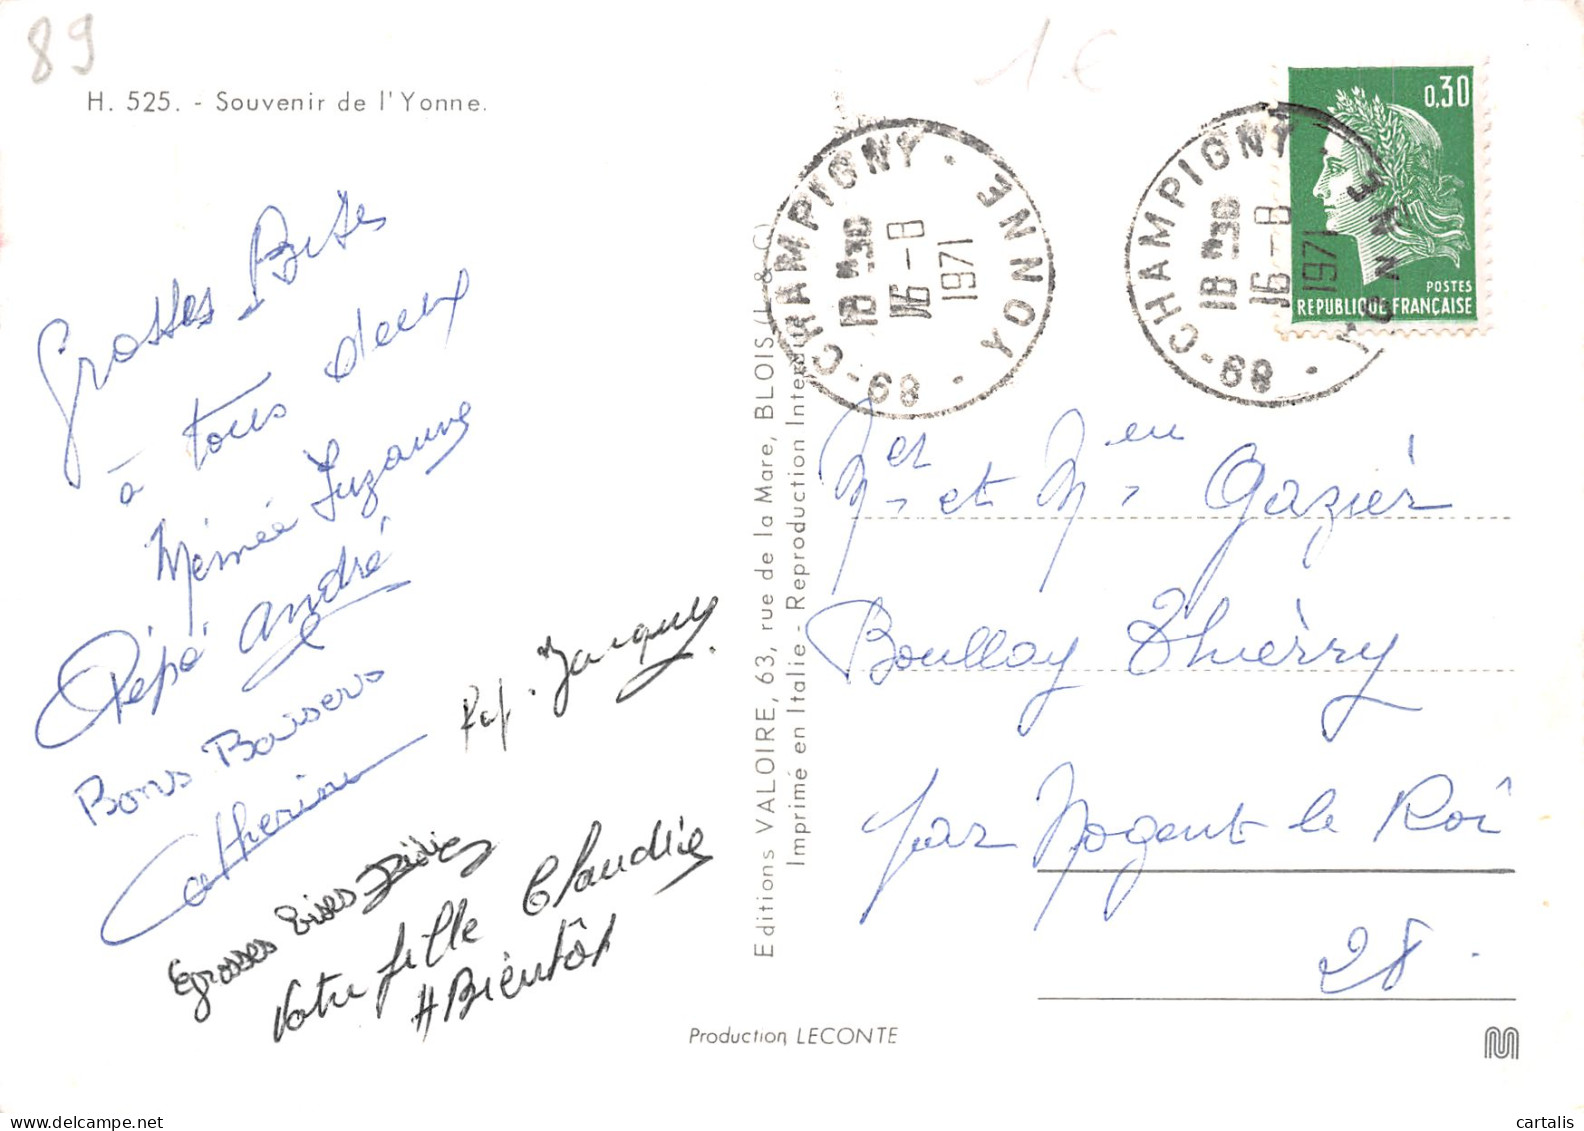 89
1€
H. 525. - Souvenir de l'Yonne.
0,30
POSTES
REPUBLIQUE FRANÇAISE
CHAMPIGNY · YONNE · 89 -
18 H30
16-8
1971
CHAMPIGNY · YONNE · 89 -
18 H30
16-8
1971
Grosses Bises
à tous deux
Mémée Suzanne
Pépé André
Bons Baisers
Catherine
Jacques
Grosses bises
Votre fille Claudie
A Bientôt
Editions VALOIRE, 63, rue de la Mare, BLOIS (L. & C)
Imprimé en Italie - Reproduction Interdite
Mr et Mme Gazier
Boullay Thierry
par Nogent le Roi
28
Production LECONTE
cartalis